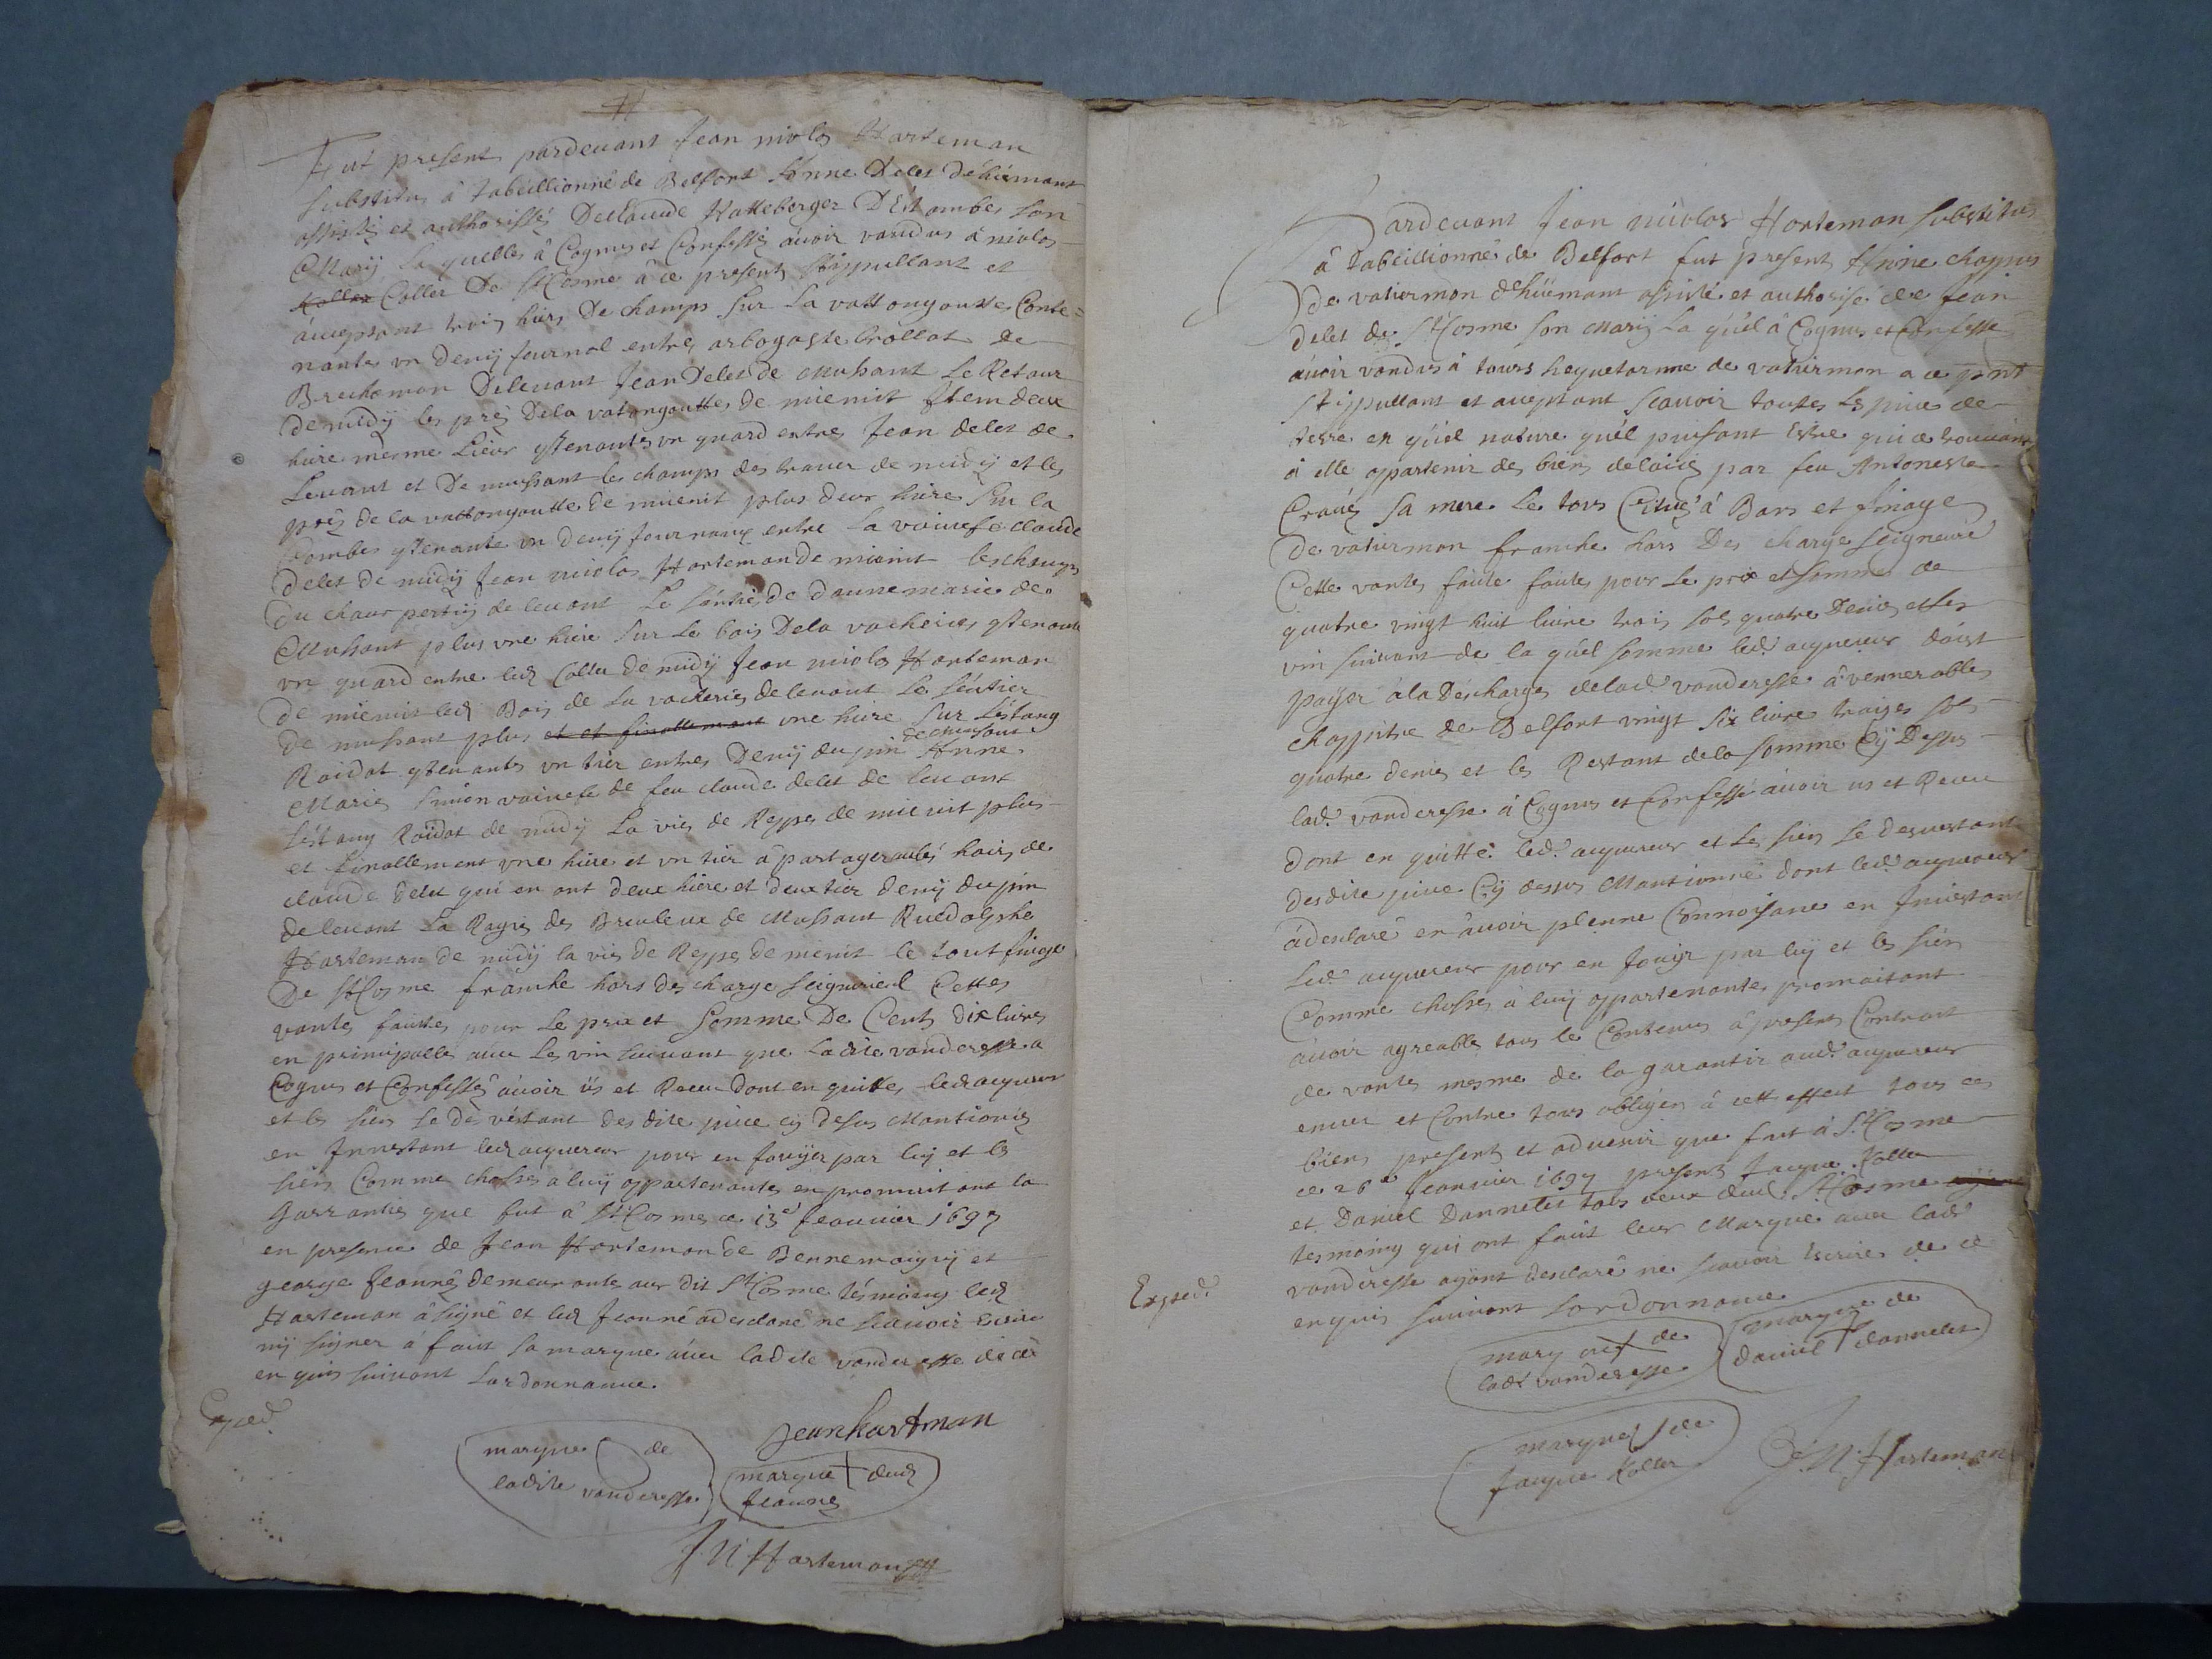 Fut present pardevant Jean niolas Harteman
substitus â tabeillionné de Belfort Anne Delet dehüemant
assistés et authorissés De Claude Hatteberger D'Estombes son
Marÿ La quelles â Cognus et Confessés âuoir vandus â niolas
Koller Coller De St Cosme â ce present stippullant et
aceptant trois hiers De champs sur La vattongoutte Conte=
nantes vn demÿ Journal entres arbogaste trollat de
Brechemon Delevant Jean Delet de Mussant Le Retour
De midÿ les prés Dela vatongouttes de mienuit Item deux
hiere mesme Lieux 9tenantes vn quard entres Jean delet de
Levant et De mussant les champs des traver de midÿ et les
prés de la vattongoutte de mienuit plus deux hiere sur la
Combes 9tenante vn demÿ Journaux entre La vaiuefe claude
delet de midÿ Jean niolas Harteman de mienuit les champs
du chaux pertuÿ de levant Le sentier de dannemarie de
Mussant plus vne hiere sur Le bois Dela vacheries 9tenante
vn quard entre led Coller de midÿ Jean niolas Harteman
de mienuit led Bois de La vacheries de levant Le séntier
de mussant plus et et finallemant vne hiere sur Léstang
de mussant
Roidat 9tenantes vn tier entres Demÿ du pin Anne
Maries Simon vaiuefe de feu claude delet de levant
Léstang Roidat de midÿ La vies de Reppes de mienuit plus
et finallement vne hiere et vn tier â partager auec hoirs de
claude delet qui en ont deux hiere et deux tier demÿ du pin
de levant La Rayes des Breuleux de Mussant Ruedolphe
Harteman de midÿ la vies de Reppes de mienuit le tout finage
De St Cosme franche hors des charge seigneuriel Cettes
vantes faites pour Le prix et somme De Cents dix livres
en principalles auec Les vin suiuant que Ladite vanderesse a
Cognus et Confessés âuoir ûs et Receu Dont en quittes led acquereur
et les siens Le de véstant des dite piece cÿ desus Mantionés
en Inuestant led acquereur pour en Jouÿer par luÿ et les
siens Comme chosses a luÿ appartenantes en promettant la
Garranties que fut â St Cosme ce 13e Jeanuier 1697
en presence de Jean Harteman de Bennemaignÿ et
george Jeannés demeurants aux dit St Cosme tésmoing led
Harteman â signé et led Jeanné adesclaré ne scauoir Escrire
nÿ signer â fait sa marque âuec ladite vanderesse de ce
en quis suiuant Lordonnance.
Exped.
marque de
ladite vanderesse
Jean hartman
marque dud
Jeannés
J. N Harteman

Pardevant Jean niolas Harteman substitus
â Tabeillionné de Belfort fut present Anne chappuis
de vatiermon dehüemant assisté et authorisé de Jean
delet de St Cosme son Marÿ La quél â Cognus et Confessé
âuoir vandus â tours hequetarnne de vatiermon a ce pnt
stippullant et aceptant scauoir toutes Les piece de
terre en quiel nature quél puissant Estre qui ce trouuant
â elle appartenir des biens delaissés par feu Antonesta
Crauéz sa mere Le tous Citués â Bans et finage
De vatiermon franche hors Des charge seigneure
Cette vantes faite faites pour Le prix et somme de
quatre vingt huit livre trois sols quatre Denies et les
vin suiuant de la quél somme led. acquereur doist
payer âla Déscharges delad. vanderesse â vennerables
chappitre de Belfort vingt six livre traizes sols
quatre denies et les Restant dela somme Cÿ Dessus
lad. vanderesse â Cognus et Confessé âuoir us et Receu
dont en quitté. led. acquereur et Les siens Le desuestant
desdite piece Cÿ dessus Mantionné dont led. acquereur
âdesclaré en âuoir plenne Connoissance en Inuestant
led. acquereur pour en Jouÿr par luÿ et les siens
Comme chosses â luÿ appartenantes promaitant
âuoir agreables tous le Contenus â present Contract
de vantes mesme de la garantir aud. acquereur
enuer et Contre tous obliges â cett effect tous ces
biens presents et aduenir que fait â St Cosme
ce 26e Jeanuier 1697 present Jacque Koller
et Daniel Dannelet tous deux dud. St Cosme
tesmoing qui ont fait leur Marque auec lade
vanderesse aÿant desclaré ne scauoir Escrire de ce
enquis suiuant Lordonnance
Exped.
marque de
lade vanderesse
marque de
daniel dannelet
marque de
Jacque Koller
J. N. Harteman